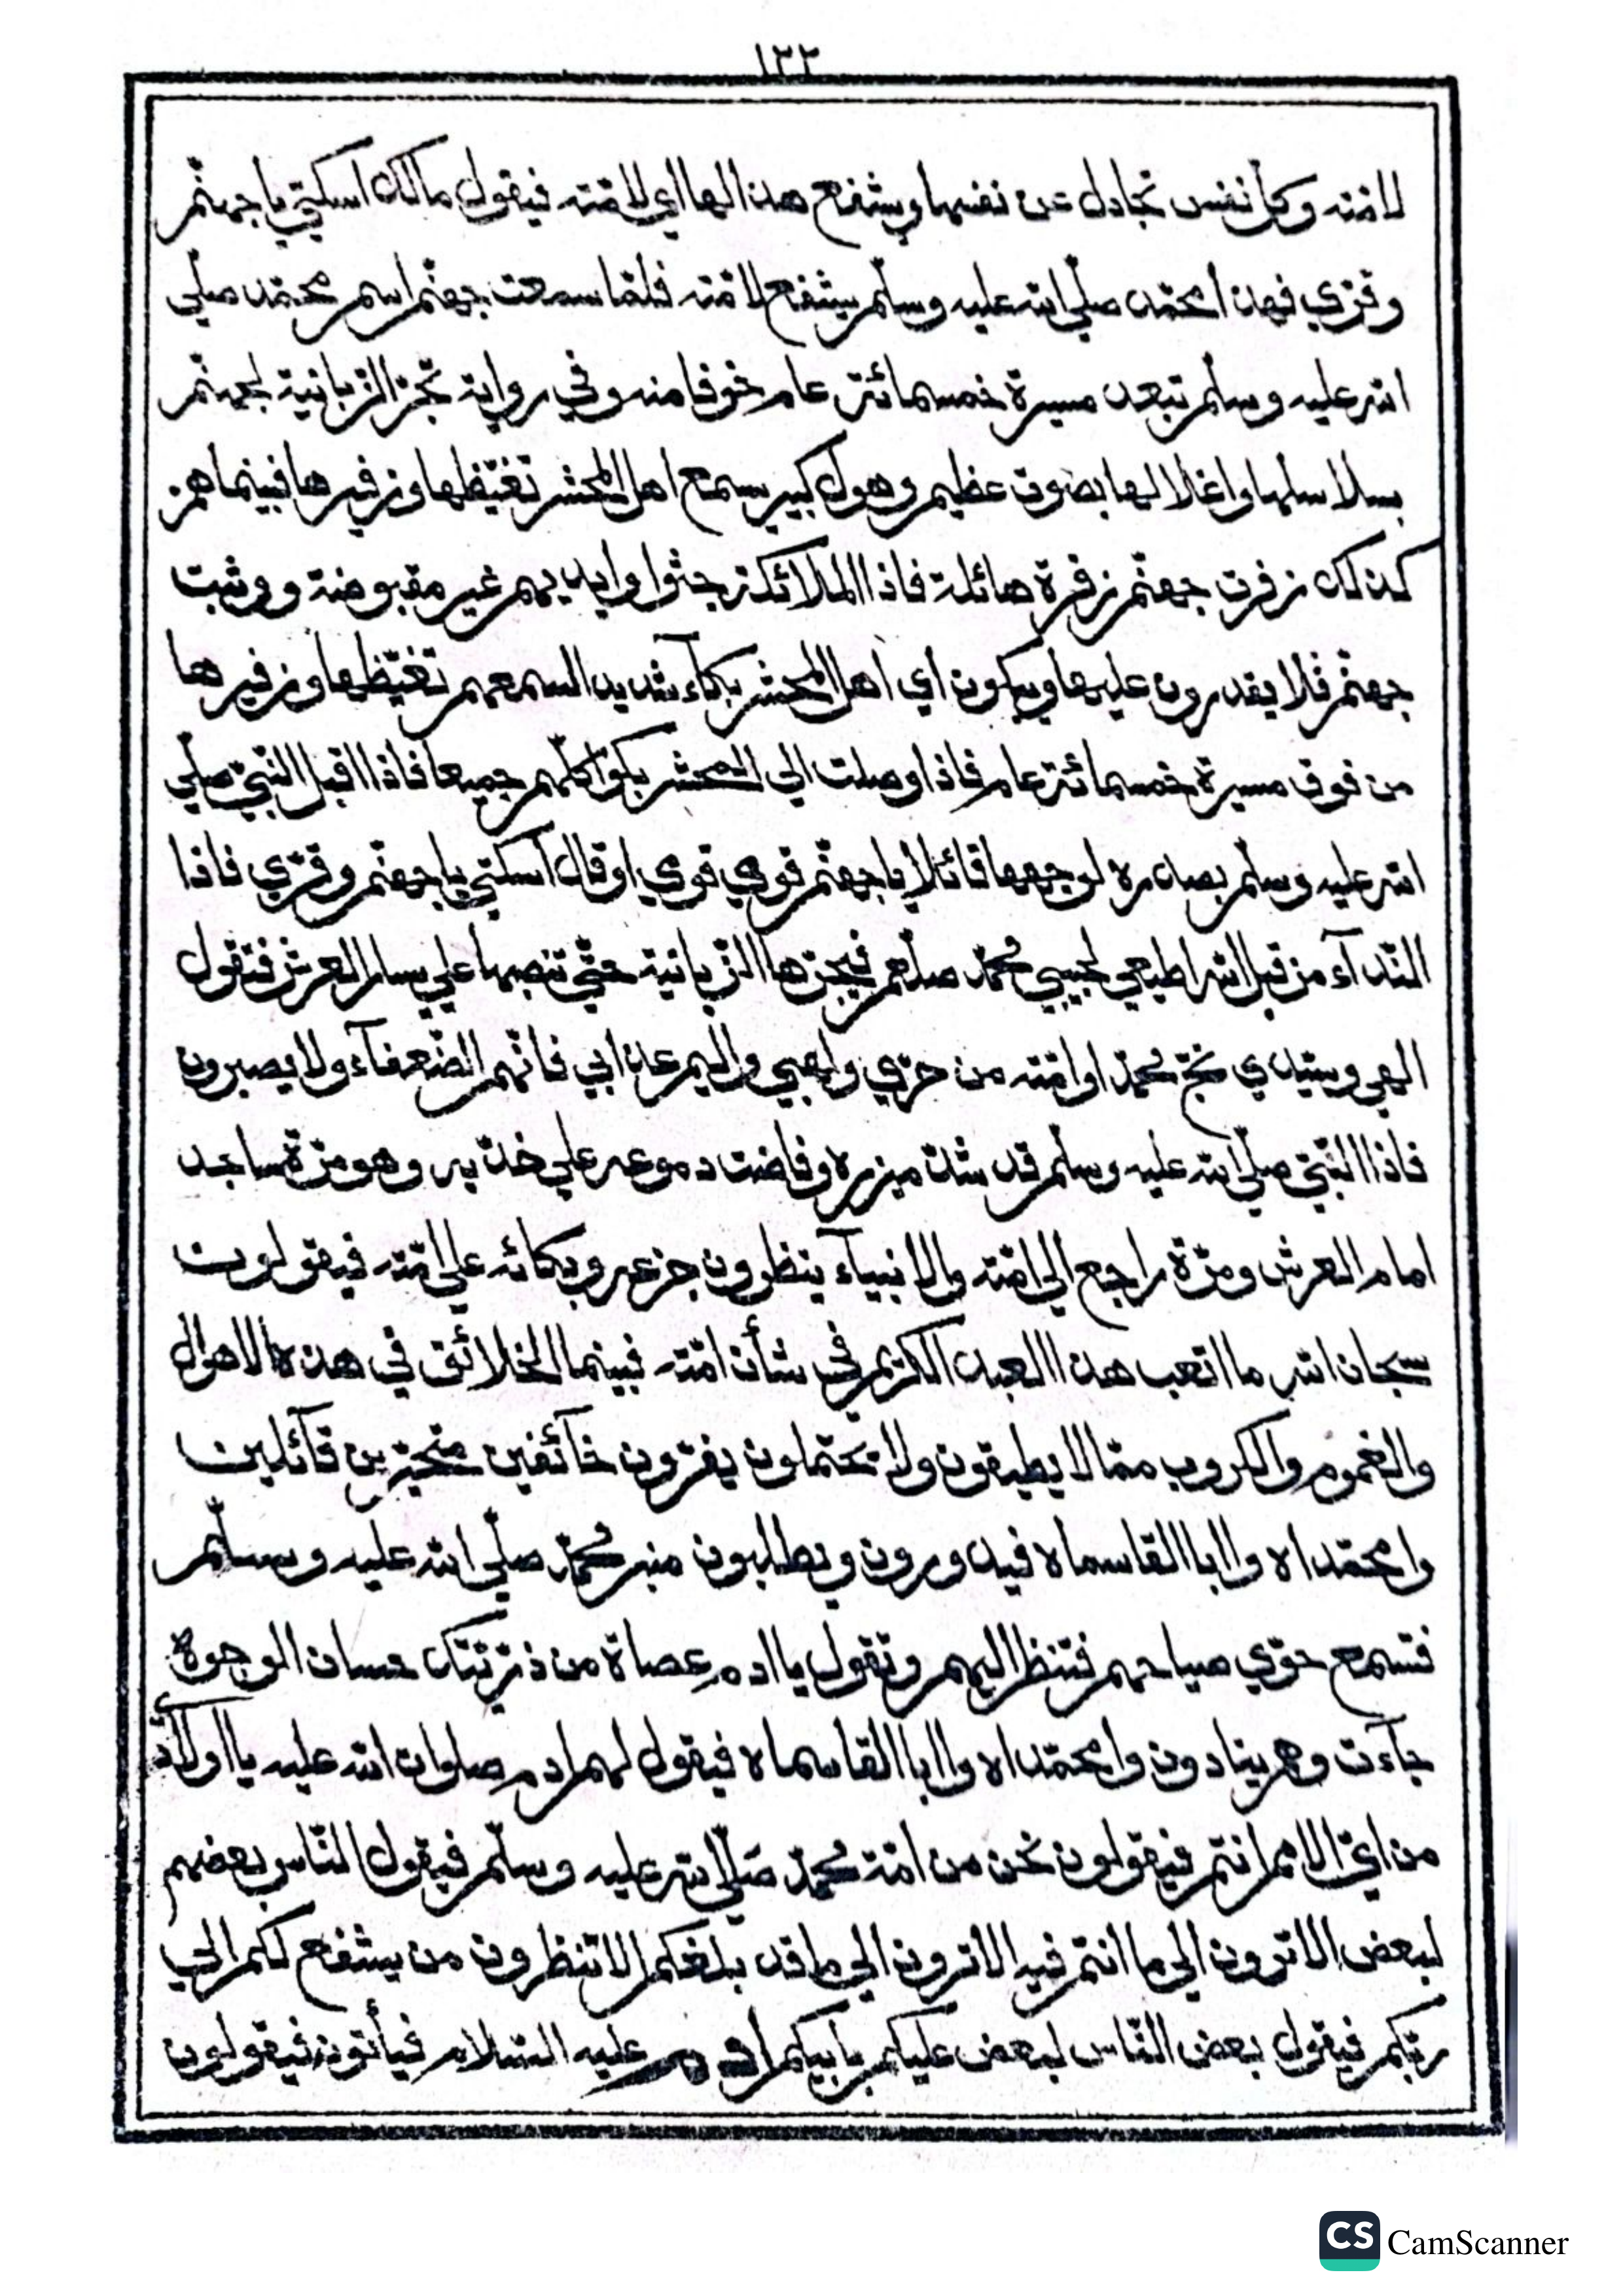 ١٣٢
لامته وكل نفس تجادل عن نفسها ويشفع هذا لها اي لامته فيقول مالك اسكتي يا جهنم
وقري فهذا محمد صلي الله عليه وسلم يشفع لامته فلما سمعت جهنم اسم محمد صلي
الله عليه وسلم تبعد مسيرة خمسمائة عام خوفا منه وفي رواية تجر الزبانية لجهنم
بسلاسلها واغلالها بصوت عظيم وهول كبير يسمع اهل المحشر تغيظها وزفيرها فبينما هم
كذلك زفرت جهنم زفرة هائلة فاذا الملائكة جثوا وايديهم غير مقبوضة ووثبت
جهنم فلا يقدرون عليها ويبكون أي اهل المحشر بكآء شديدا لسمعهم تغيظها وزفيرها
من فوق مسيرة خمسمائة عام فاذا وصلت الي المحشر بكوا كلهم جميعا فاذا اقبل النبي صلي
الله عليه وسلم بصدره لوجهها قائلا يا جهنم قوي قوي او قال اسكتي يا جهنم وقري فاذا
النداء من قبل الله اطيعي لحبيبي محمد صلعم فيجرها الزبانية حتي تنصبها علي يسار العرش فتقول
الهي وسيدي نج محمدا وامته من حري ولهبي واليم عذابي فانهم الضعفآء ولا يصبرون
فاذا النبي صلي الله عليه وسلم قد شد ميزره وفاضت دموعه علي خديه وهو مرة ساجد
امام العرش ومرة راجع الي امته والانبيآء ينظرون جزعه وبكائه علي امته فيقولون
سبحان الله ما اتعب هذا العبد الكريم في شأن امته فبينما الخلائق في هذه الاهوال
والغموم والكروب مما لا يطيقون ولا يحتملون يفرون خآئفين متحيرين قآئلين
وا محمداه وا ابا القاسماه فيدورون ويطلبون منبر محمد صلي الله عليه وسلم
فتسمع حوي صياحهم فتنظر اليهم وتقول يا ادم عصاة من ذريتك حسان الوجوه
جآءت وهم ينادون وا محمداه وا ابا القاسماه فيقول لهم ادم صلوات الله عليه يا اولاد
من اي الامم انتم فيقولون نحن من امة محمد صلي الله عليه وسلم فيقول الناس بعضهم
لبعض الا ترون الي ما انتم فيه الا ترون الي ما قد بلغكم الا تنظرون من يشفع لكم الي
ربكم فيقول بعض الناس لبعض عليكم بابيكم ادم عليه السلام فيأتونه فيقولون
CS CamScanner